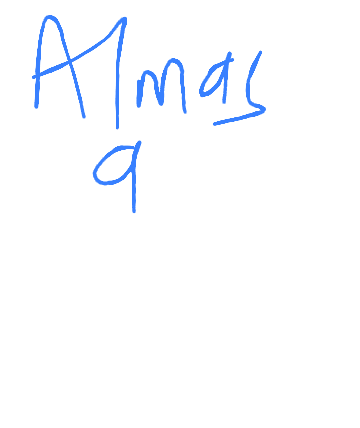 Almas
9